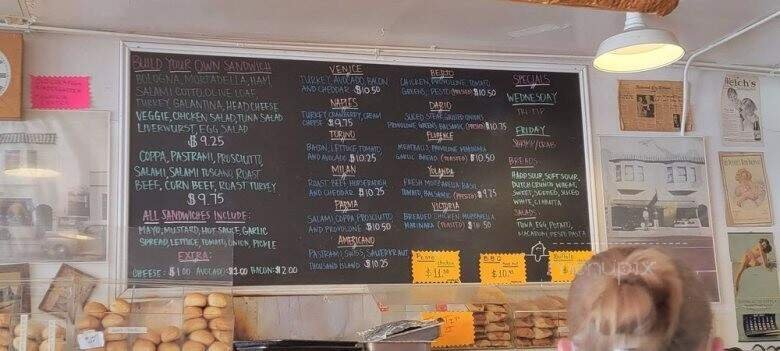 BUILD YOUR OWN SANDWICH
BOLOGNA, MORTADELLA, HAM
SALAMI COTTO, OLIVE LOAF,
TURKEY GALANTINA, HEAD CHEESE
VEGGIE, CHICKEN SALAD, TUNA SALAD
LIVERWURST, EGG SALAD
$9.25
COPPA, PASTRAMI, PROSCIUTTO,
SALAMI, SALAMI TUSCANO, ROAST
BEEF, CORN BEEF, ROAST TURKEY
$9.75
ALL SANDWICHES INCLUDE:
MAYO, MUSTARD, HOT SAUCE, GARLIC
SPREAD, LETTUCE, TOMATO, ONION, PICKLE
EXTRA:
CHEESE: $1.00 AVOCADO: $2.00 BACON: $2.00
VENICE
TURKEY, AVOCADO, BACON
AND CHEDDAR $10.50
NAPLES
TURKEY, CRANBERRY, CREAM
CHEESE $9.75
TORINO
BACON, LETTUCE, TOMATO
AND AVOCADO $10.25
MILAN
ROAST BEEF, HORSERADISH
AND CHEDDAR $10.25
PARMA
SALAMI, COPPA, PROSCIUTTO
AND PROVOLONE $10.50
AMERICANO
PASTRAMI, SWISS, SAUERKRAUT
THOUSAND ISLAND $10.25
BERTO
CHICKEN, PROVOLONE, TOMATO,
GREENS, PESTO (PRESSED) $10.50
DARIO
SLICED STEAK, GRILLED ONIONS
PROVOLONE, GREENS, BALSAMIC (PRESSED) $10.75
FLORENCE
MEATBALLS, PROVOLONE, MARINARA
GARLIC BREAD (TOASTED) $10.50
YOLANDA
FRESH MOZZARELLA, BASIL
TOMATO, BALSAMIC (PRESSED) $9.75
VICTORIA
BREADED CHICKEN, MOZZARELLA,
MARINARA (TOASTED) $10.50
SPECIALS
WEDNESDAY
TRI-TIP
FRIDAY
SHRIMP/CRAB
BREADS
HARD SOUR, SOFT SOUR,
DUTCH CRUNCH, WHEAT,
SWEET, SEEDED, SLICED
WHITE, CIABATTA
SALADS
TUNA, EGG, POTATO,
MACARONI, PESTO PASTA
Pesto
chicken
$11.50
BBQ
$10.
Buffalo
$
menupix